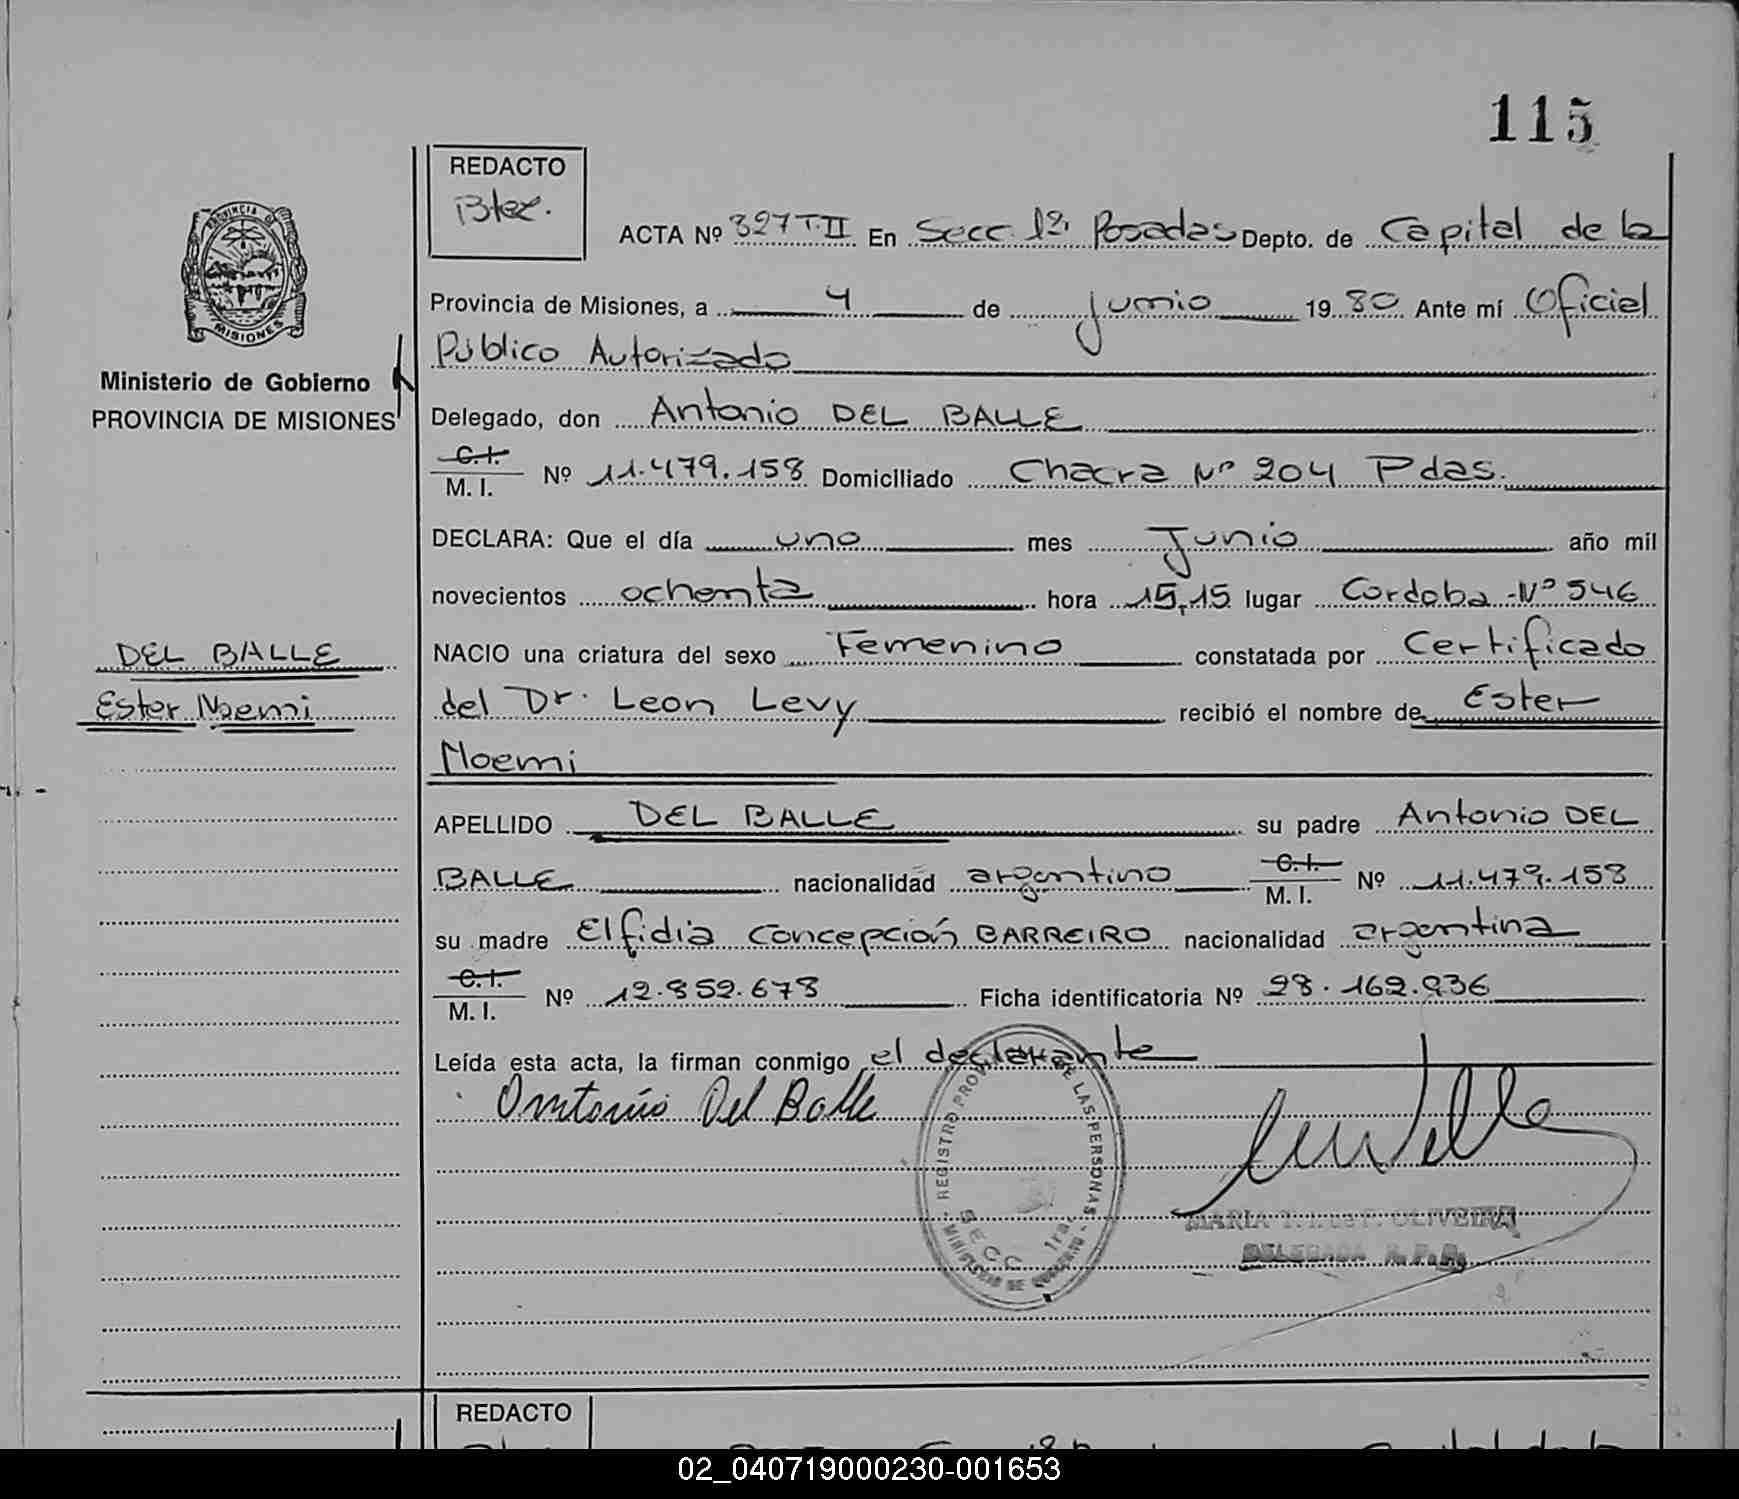 115
REDACTO
Btez.
PROVINCIA DE
MISIONES
Ministerio de Gobierno
PROVINCIA DE MISIONES
ACTA Nº 327 T.II En Secc 1ª Posadas Depto. de Capital de la
Provincia de Misiones, a 4 de junio 1980 Ante mí Oficial
Público Autorizado
Delegado, don Antonio DEL BALLE
C.I.
M. I. Nº 11.479.158 Domiciliado Chacra Nº 204 Pdas.
DECLARA: Que el día uno mes Junio año mil
novecientos ochenta hora 15,15 lugar Cordoba Nº 546
NACIO una criatura del sexo Femenino constatada por Certificado
del Dr. Leon Levy recibió el nombre de Ester
Noemi
DEL BALLE
Ester Noemi
APELLIDO DEL BALLE su padre Antonio DEL
BALLE nacionalidad argentino C.I. M. I. Nº 11.479.158
su madre Elfidia Concepción BARREIRO nacionalidad argentina
C.I.
M. I. Nº 12.852.678 Ficha identificatoria Nº 28.162.936
Leída esta acta, la firman conmigo el declarante
Antonio Del Balle
REGISTRO PROV DE LAS PERSONAS
SECC 1ra.
MINISTERIO DE GOBIERNO
MARIA OLIVEIRA
DELEGADA R.P.P.
REDACTO
02_040719000230-001653